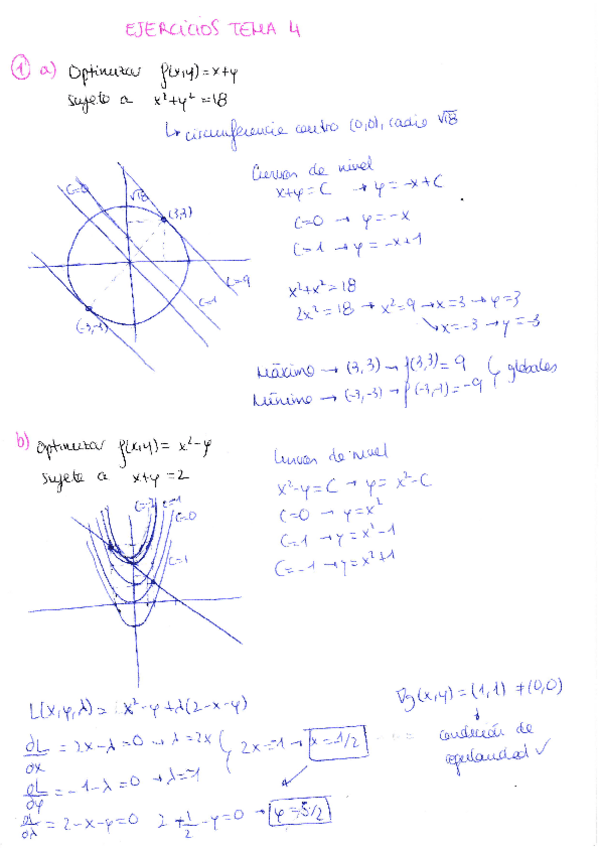 EJERCICIOS TEMA 4
① a) Optimizar f(x,y)=x+y
sujeto a x²+y²=18
↳ circunferencia centro (0,0), radio √18
Curvas de nivel
x+y=C → y=-x+C
C=0 → y=-x
C=1 → y=-x+1
C=0
√18
(3,3)
C=9
C=1
(-3,-3)
x²+x²=18
2x²=18 → x²=9 → x=3 → y=3
↘ x=-3 → y=-3
Máximo → (3,3) → f(3,3)=9
Mínimo → (-3,-3) → f(-3,-3)=-9
globales
b) Optimizar f(x,y)=x²-y
sujeto a x+y=2
Curvas de nivel
x²-y=C → y=x²-C
C=0 → y=x²
C=1 → y=x²-1
C=-1 → y=x²+1
C=-1
C=0
C=1
L(x,y,λ)= x²-y+λ(2-x-y)
∇g(x,y)=(1,1)≠(0,0)
condición de
regularidad ✓
∂L/∂x = 2x-λ=0 → λ=2x
2x=-1 → x=-1/2
∂L/∂y = -1-λ=0 → λ=-1
∂L/∂λ = 2-x-y=0 2+1/2-y=0 → y=5/2